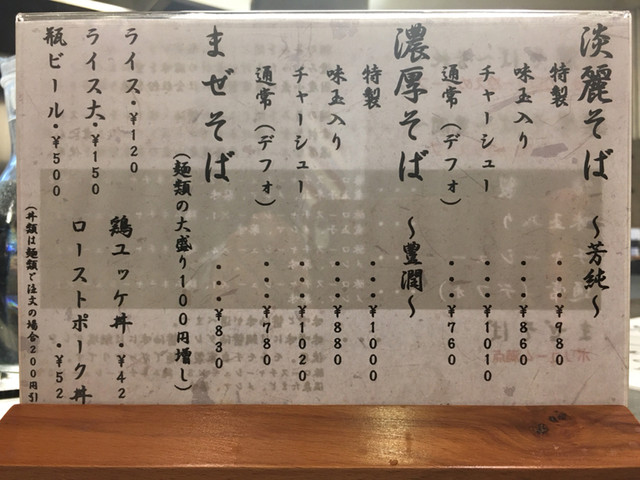 淡麗そば ～芳純～
特製 ・・・¥980
味玉入り ・・・¥860
チャーシュー ・・・¥1010
通常(デフォ) ・・・¥760
濃厚そば ～豊潤～
特製 ・・・¥1000
味玉入り ・・・¥880
チャーシュー ・・・¥1020
通常(デフォ) ・・・¥780
まぜそば ・・・¥830
(麺類の大盛り100円増し)
ライス・¥120
鶏ユッケ丼・¥42
ライス大・¥150
ローストポーク丼・¥52
瓶ビール・¥500
(丼類は麺類ご注文の場合200円引